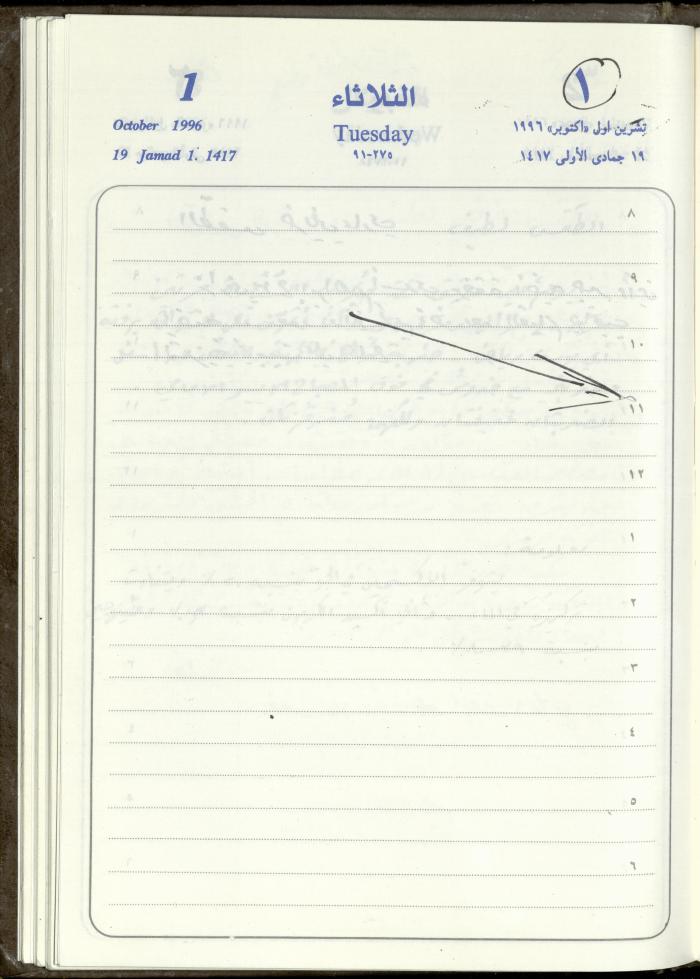 1 الثلاثاء ١
October 1996 Tuesday تشرين اول «اكتوبر» ١٩٩٦
19 Jamad 1. 1417 ٩١-٢٧٥ ١٩ جمادى الأولى ١٤١٧
٨
٩
١٠
١١
١٢
١
٢
٣
٤
٥
٦